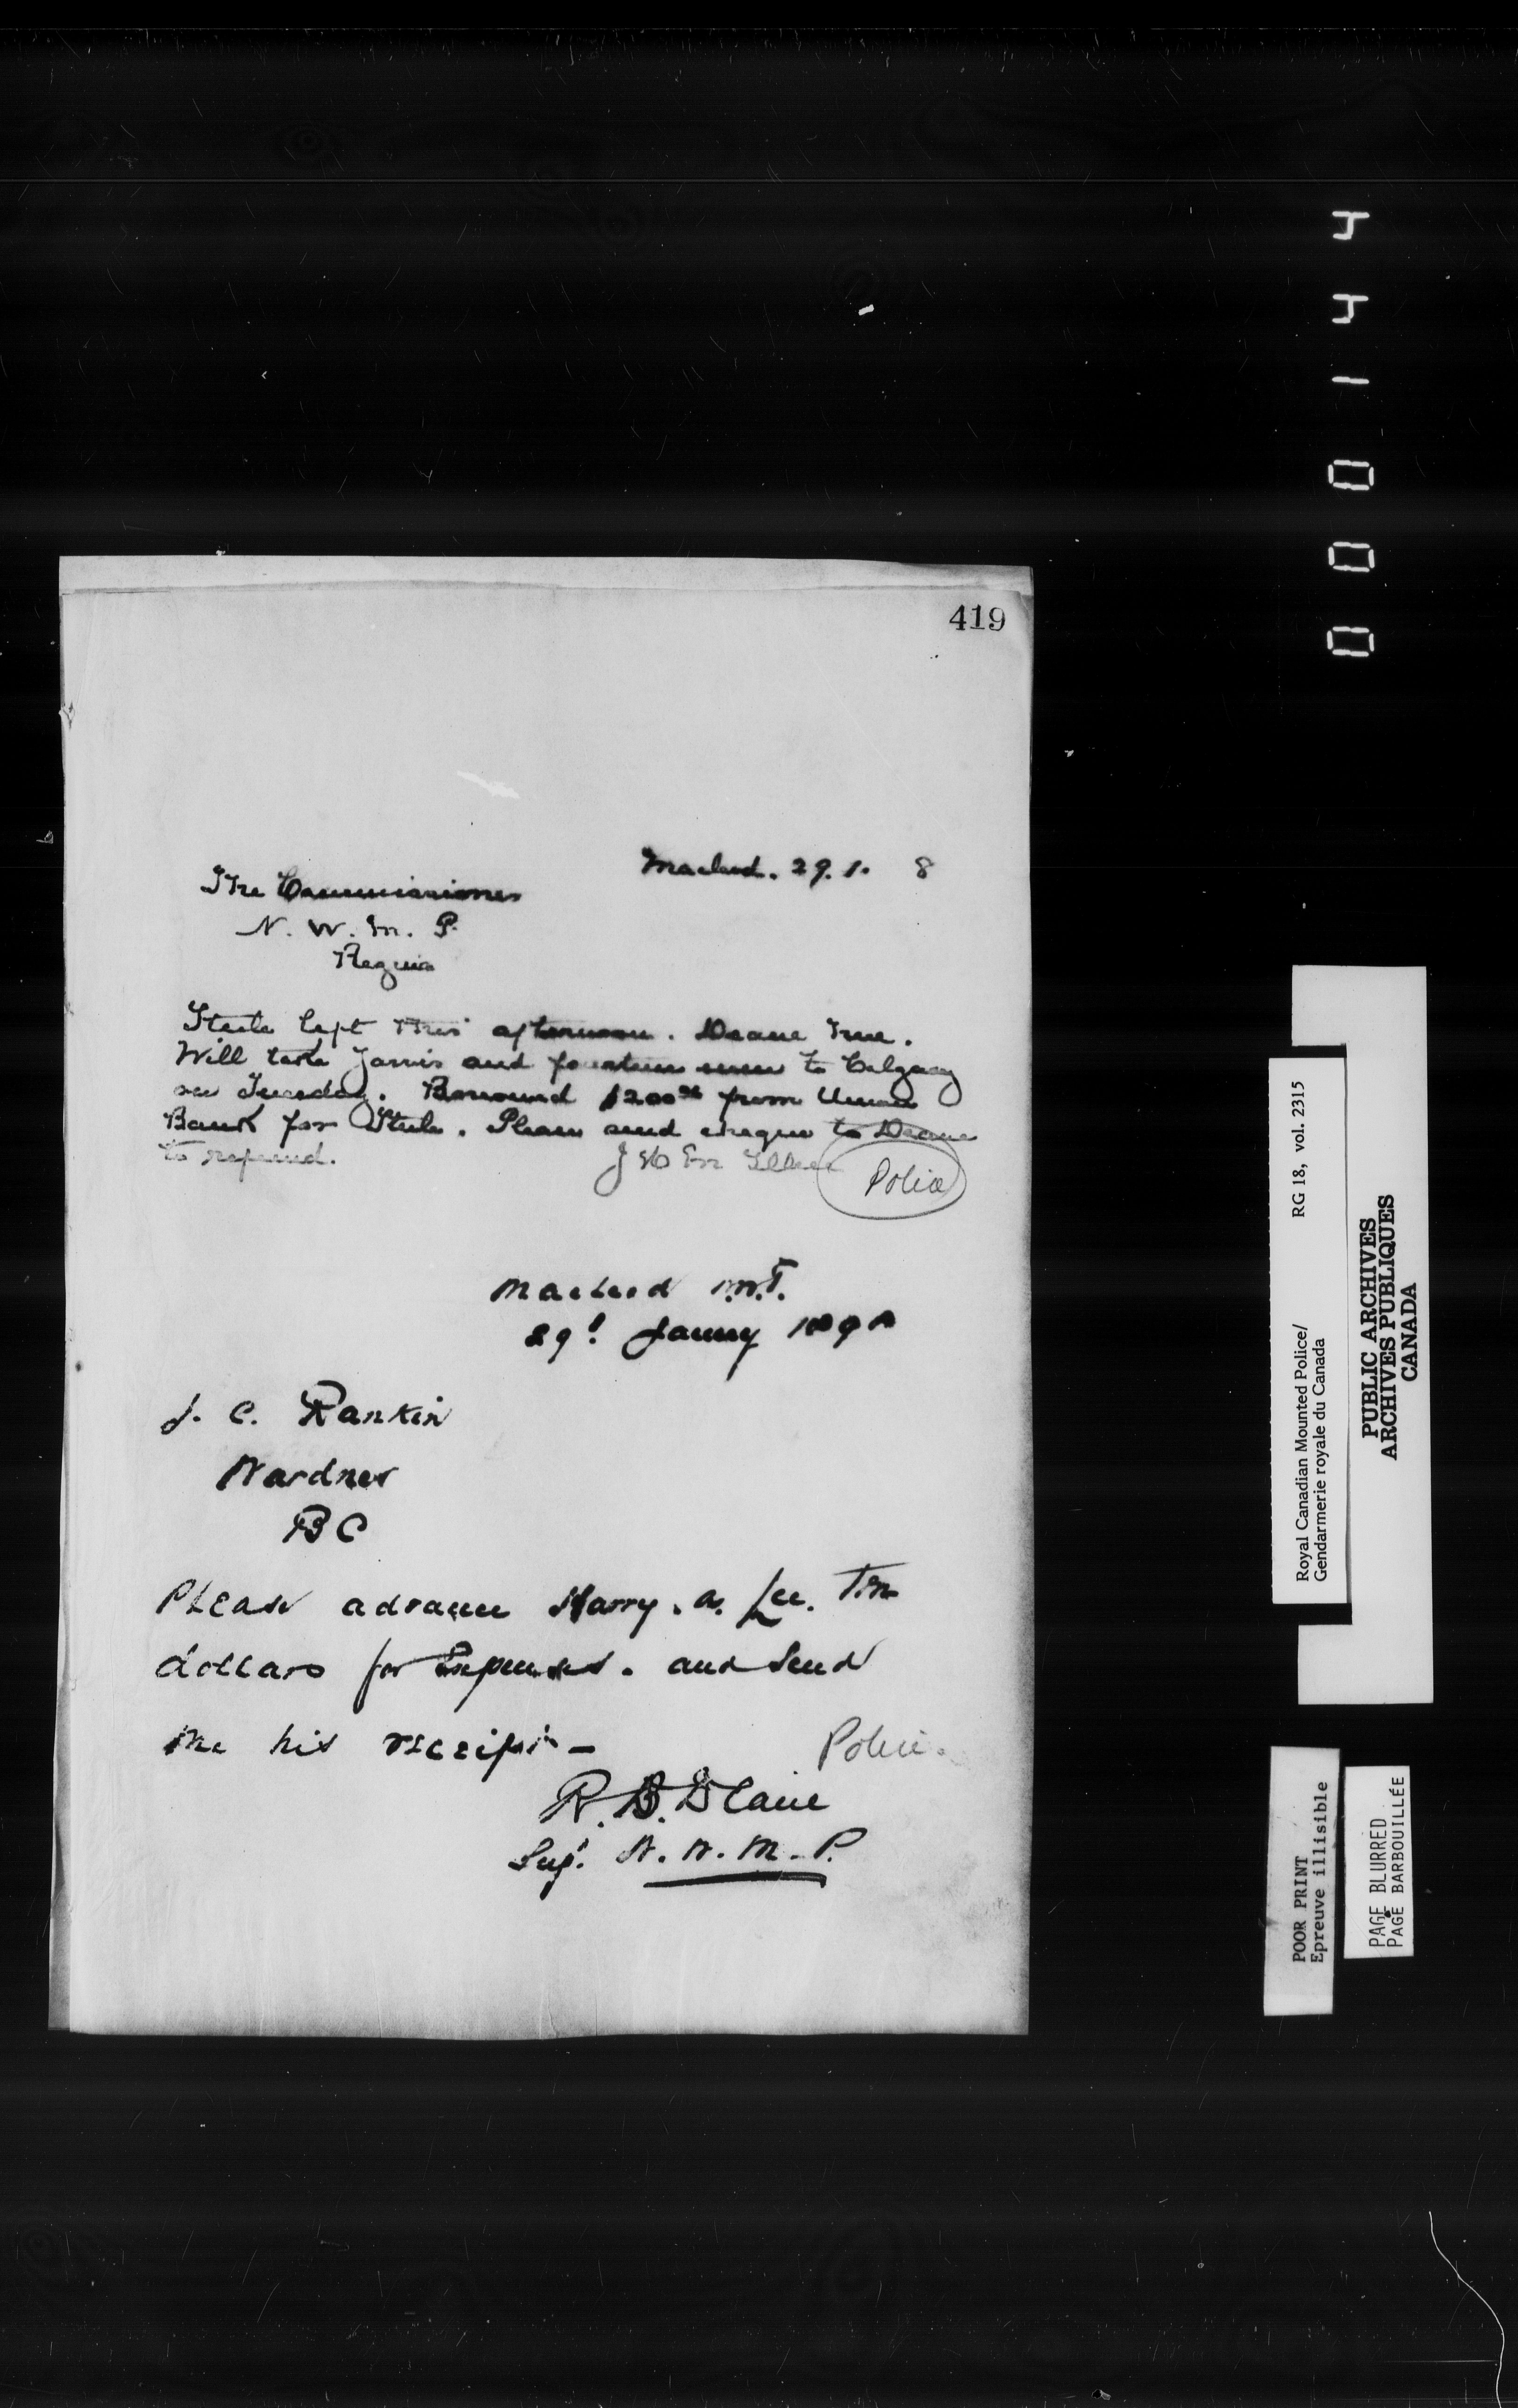 419
Macleod. 29. 1. 8
The Commissioner
N. W. M. P.
Regina
Steele left this afternoon. Deane here.
Will take Jarvis and fourteen men to Calgary
on Tuesday. Borrowed $200 from Union
Bank for Steele. Please send cheque to Deane
to refund.
Police
Macleod N.W.T.
29! January 1898
J. C. Rankin
Wardner
BC
Please advance Harry. A. Lee. Ten
dollars for Expenses. and send
me his receipt -
Police.
R. B. Deane
Supt. N. W. M. P.
J J - 0 0 0
Royal Canadian Mounted Police/ RG 18, vol. 2315
Gendarmerie royale du Canada
PUBLIC ARCHIVES
ARCHIVES PUBLIQUES
CANADA
POOR PRINT
Epreuve illisible
PAGE BLURRED
PAGE BARBOUILLÉE